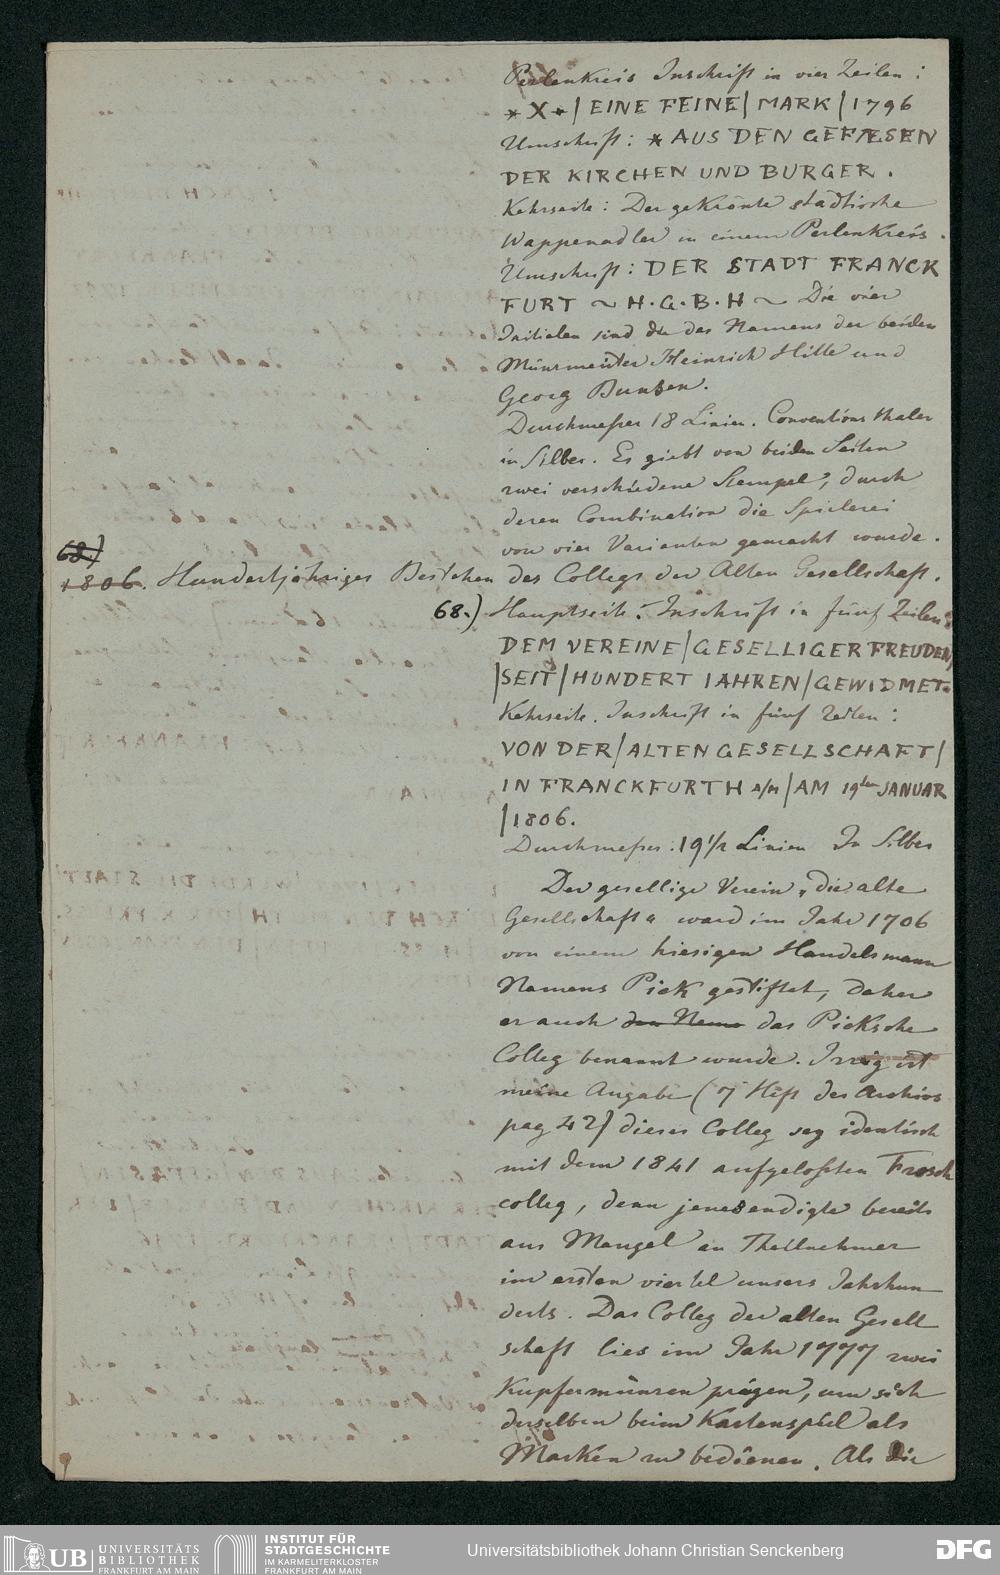 Perlenkreis Inschrift in vier Zeilen:
*X*/ EINE FEINE/ MARK/ 1796
Umschrift: * AUS DEN GEFÆSEN
DER KIRCHEN UND BURGER.
Kehrseite: Der gekrönte städtische
Wappenadler in einem Perlenkreis.
Umschrift: DER STADT FRANCK
FURT ~ H.G.B.H ~ Die vier
Initialen sind die des Namens der beiden
Münzmeister Heinrich Hille und
Georg Bunsen.
Durchmeßer 18 Linien. Conventionsthaler
in Silber. Es giebt von beiden Seiten
zwei verschiedene Stempel, durch
deren Combination die Spielerei
von vier Varianten gemacht wurde.
68.)
1806. Hundertjähriges Bestehen des Collegs der Alten Gesellschaft.
68.) Hauptseite: Inschrift in fünf Zeilen:
DEM VEREINE/ GESELLIGER FREUDEN/
/SEIT/ HUNDERT IAHREN/ GEWIDMET.
Kehrseite. Inschrift in fünf Zeilen:
VON DER/ ALTEN GESELLSCHAFT/
IN FRANCKFURTH a/M/ AM 19ten JANUAR
/1806.
Durchmeßer: 19 1/2 Linien In Silber
Der gesellige Verein „die alte
Gesellschaft" ward im Jahr 1706
von einem hiesigen Handelsmann
Namens Pick gestiftet, daher
er auch den Name das Picksche
Colleg benannt wurde. Irrig ist
meine Angabe (7 Heft des Archivs
pag 42) dieses Colleg sey identisch
mit dem 1841 aufgelößten Frosch
colleg, denn jenes endigte bereits
aus Mangel an Theilnehmer
im ersten viertel unsers Jahrhun
derts. Das Colleg der alten Gesell
schaft lies im Jahr 1777 zwei
Kupfermünzen prägen, um sich
derselben beim Kartenspiel als
Marken zu bedienen. Als die
UB UNIVERSITÄTS
BIBLIOTHEK
FRANKFURT AM MAIN
INSTITUT FÜR
STADTGESCHICHTE
IM KARMELITERKLOSTER
FRANKFURT AM MAIN
Universitätsbibliothek Johann Christian Senckenberg
DFG